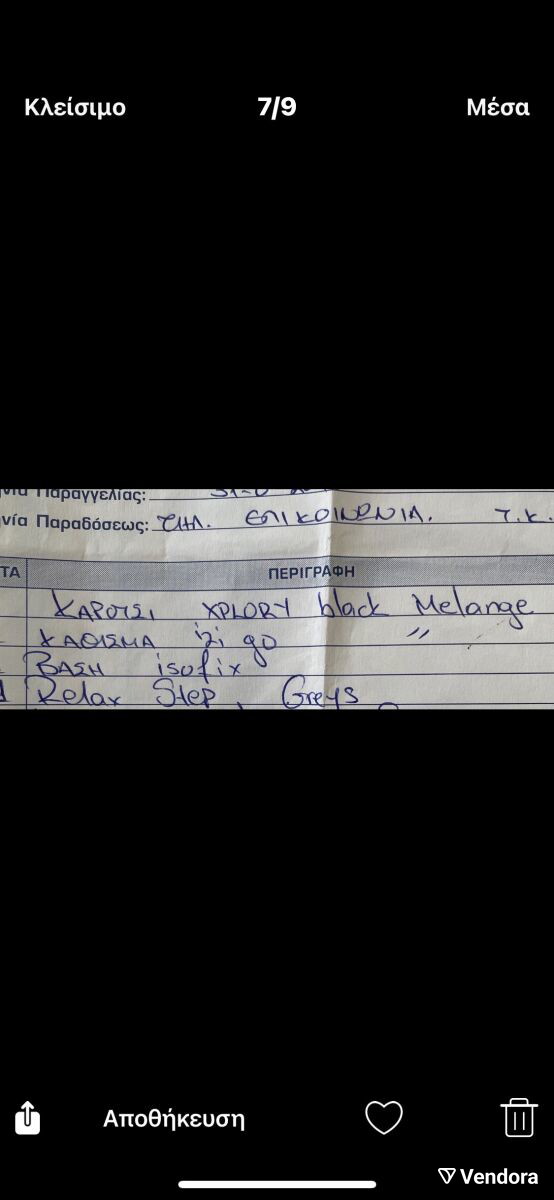 Κλείσιμο 7/9 Μέσα
Παραγγελίας:
νία Παραδόσεως: ΤΗΛ. ΕΠΙΚΟΙΝΩΝΙΑ. Τ.Κ.
ΤΑ ΠΕΡΙΓΡΑΦΗ
ΚΑΡΟΤΣΙ XPLORY black Melange
ΚΑΘΙΣΜΑ izi go 〃
ΒΑΣΗ isofix
Relax Step, Greys
Αποθήκευση
Vendora